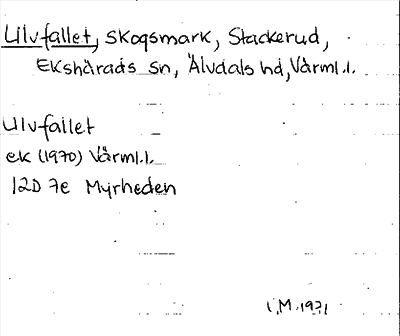 Ulvfallet, skogsmark, Stackerud,
Ekshärads sn, Älvdals hd, Värml.l.
Ulvfallet
ek (1970) Värml.l.
12D 7e Myrheden
I.M. 1971